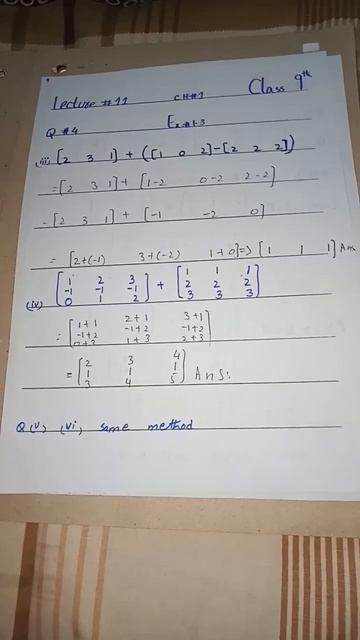 Lecture #11 CH#1 Class 9th
Q #4 Ex#1.3
(iii) [2 3 1] + ([1 0 2]-[2 2 2])
=[2 3 1]+[1-2 0-2 2-2]
=[2 3 1] + [-1 -2 0]
= [2+(-1) 3+(-2) 1+0]=>[1 1 1] Ans
(iv) [1 2 3 + [1 1 1
-1 -1 -1 2 2 2
0 1 2] 3 3 3]
=[1+1 2+1 3+1
-1+2 -1+2 -1+2
0+3 1+3 2+3]
=[2 3 4
1 1 1
3 4 5] Ans:
Q(v) (vi, same method